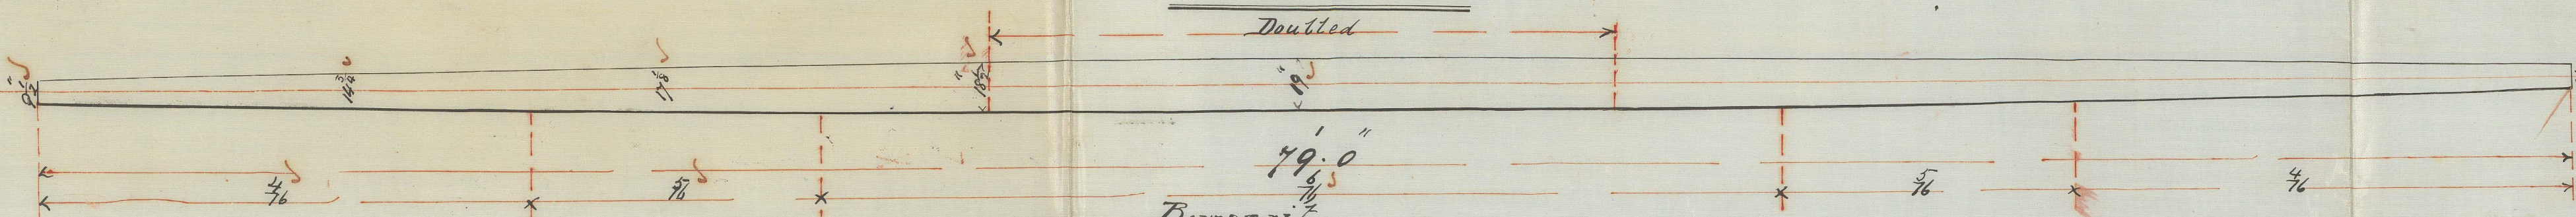 Doubled
9 1/2" 14 3/4 17 1/8 18 1/2" 19"
79'.0"
4/16 5/16 6/16 5/16 4/16